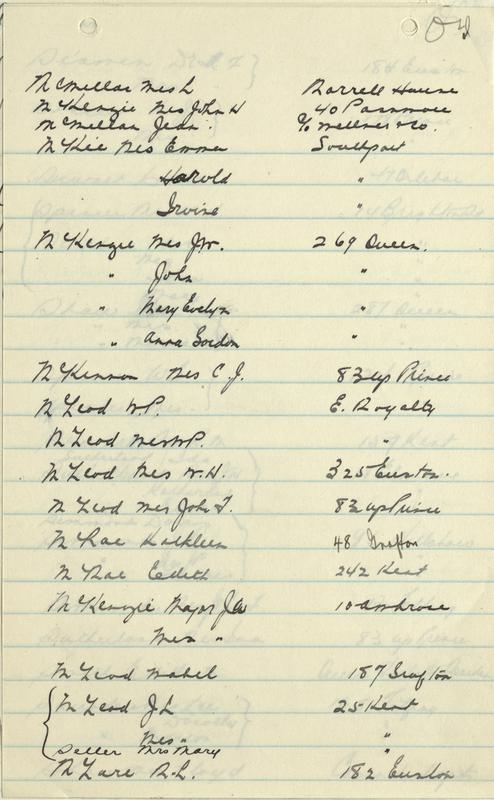 McMillan Mrs L Darrell House
McKenzie Mrs John H 40 Passmore
McMillan Jean c/o Mellner & Co.
McKie Mrs Emma Southport
Harold "
Irvine "
McKenzie Mrs J.W. 269 Queen.
" John "
" Mary Evelyn "
" Anna Gordon "
McKinnon Mrs C. J. 83 up Prince
McLeod W.P. E. Royalty
McLeod Mrs W.P. "
McLeod Mrs W.H. 325 Euston.
McLeod Mrs John F. 83 up Prince
McRae Kathleen 48 Grafton
McRae Edith 242 Kent
McKenzie Major JW 10 Ambrose
Mrs "
McLeod Mabel 187 Grafton
McLeod J L 25 Kent
Mrs " "
Seller Mrs Mary "
McLure R.L. 182 Euston